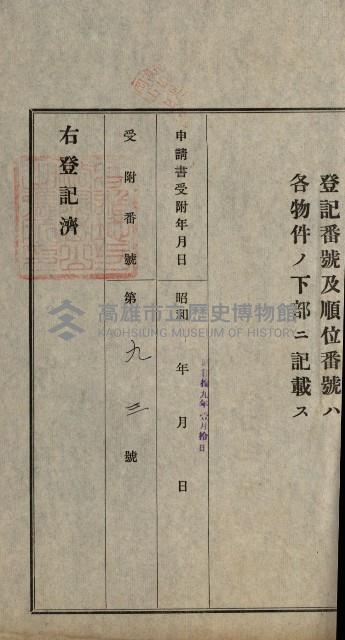 登記番號及順位番號ハ
各物件ノ下部ニ記載ス
申請書受附年月日
昭和 年 月 日
拾九年壹月拾日
受附番號
第九三號
右登記濟
高雄市立歷史博物館
KAOHSIUNG MUSEUM OF HISTORY